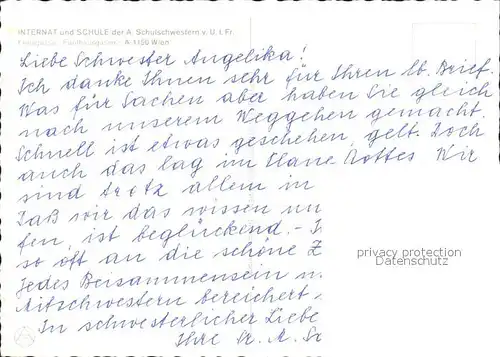 INTERNAT und SCHULE der A. Schulschwestern v. U. l. Fr.
A-1150 Wien
Liebe Schwester Angelika!
Ich danke Ihnen sehr für Ihren lb. Brief.
Was für Sachen aber haben Sie gleich
nach unserem Weggehen gemacht.
Schnell ist etwas geschehen, gelt. Doch
auch das lag im Plane Gottes. Wir
sind trotz allem in
Daß wir das wissen un
fen, ist beglückend. -
so oft an die schöne Z
Jedes Beisammensein
Mitschwestern bereichert
In schwesterlicher Liebe
Ihre Sr. A. Sc
privacy protection
Datenschutz